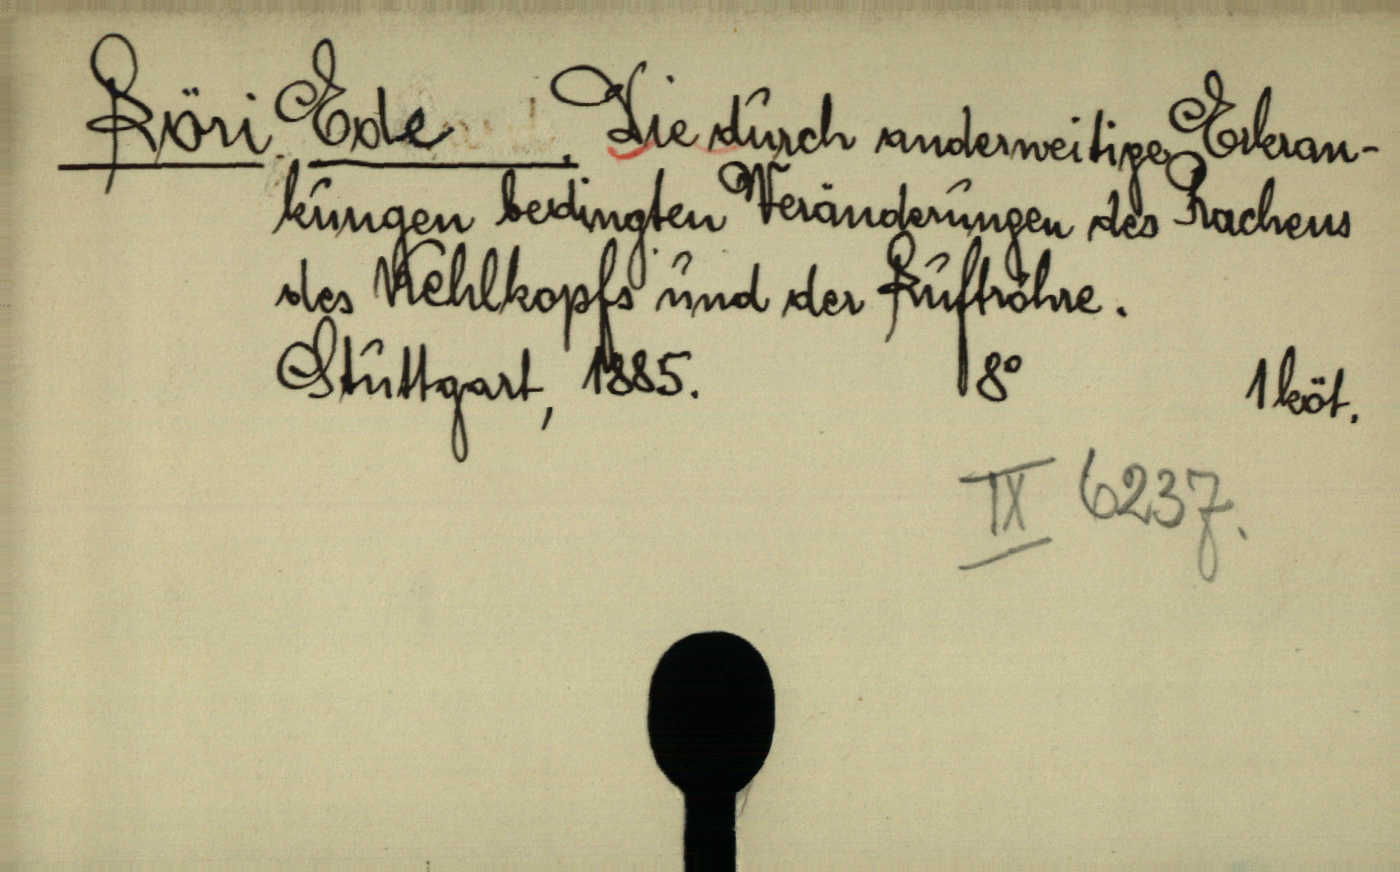 Löri Ede. Die durch anderweitige Erkran-
kungen bedingten Veränderungen des Rachens
des Kehlkopfs und der Luftröhre.
Stuttgart, 1885. 8° 1 köt.
IX 6237.